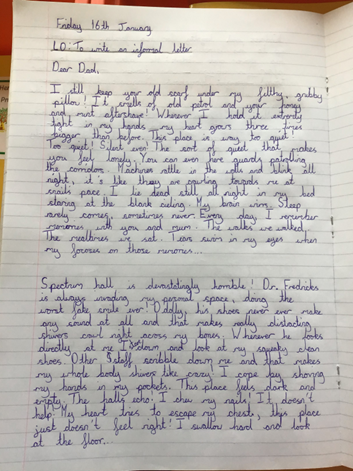 Friday 16th January
LO: To write an informal letter
Dear Dad,
I still keep your old scarf under my filthy, grubby
pillow! It smells of old petrol and your honey
and mint aftershave! Whenever I hold it extremely
tight in my hands, my heart grows three times
bigger than before. This place is way too quiet!
Too quiet! Silent even! The sort of quiet that makes
you feel lonely. You can even hear guards patrolling
the corridors. Machines rattle in the walls and blink all
night, it's like they are crawling towards me at
snails pace. I lie dead still all night in my bed
staring at the blank ceiling. My brain Sleep
rarely comes, sometimes never. Every day, I remember
memories with you and mum. The walks we walked.
The we sat. Tears swim in my eyes when
my focuses on those memories...
Spectrum hall is devastatingly horrible! Dr. Fredricks
is always invading my personal space, doing the
worst fake smile ever! Oddly, his shoes never ever make
any sound at all and that makes really distracting
shivers crawl right across my bones. Whenever he looks
directly at me I down and look at my squeaky clean
shoes. Other staff scribble down me and that makes
my whole body shiver like crazy! I cope by shoving
my hands in my pockets. This place feels dark and
empty. The halls echo. I chew my nails! It doesn't
help. My heart tries to escape my chests, this place
just doesn't feel right! I swallow hard and look
at the floor..